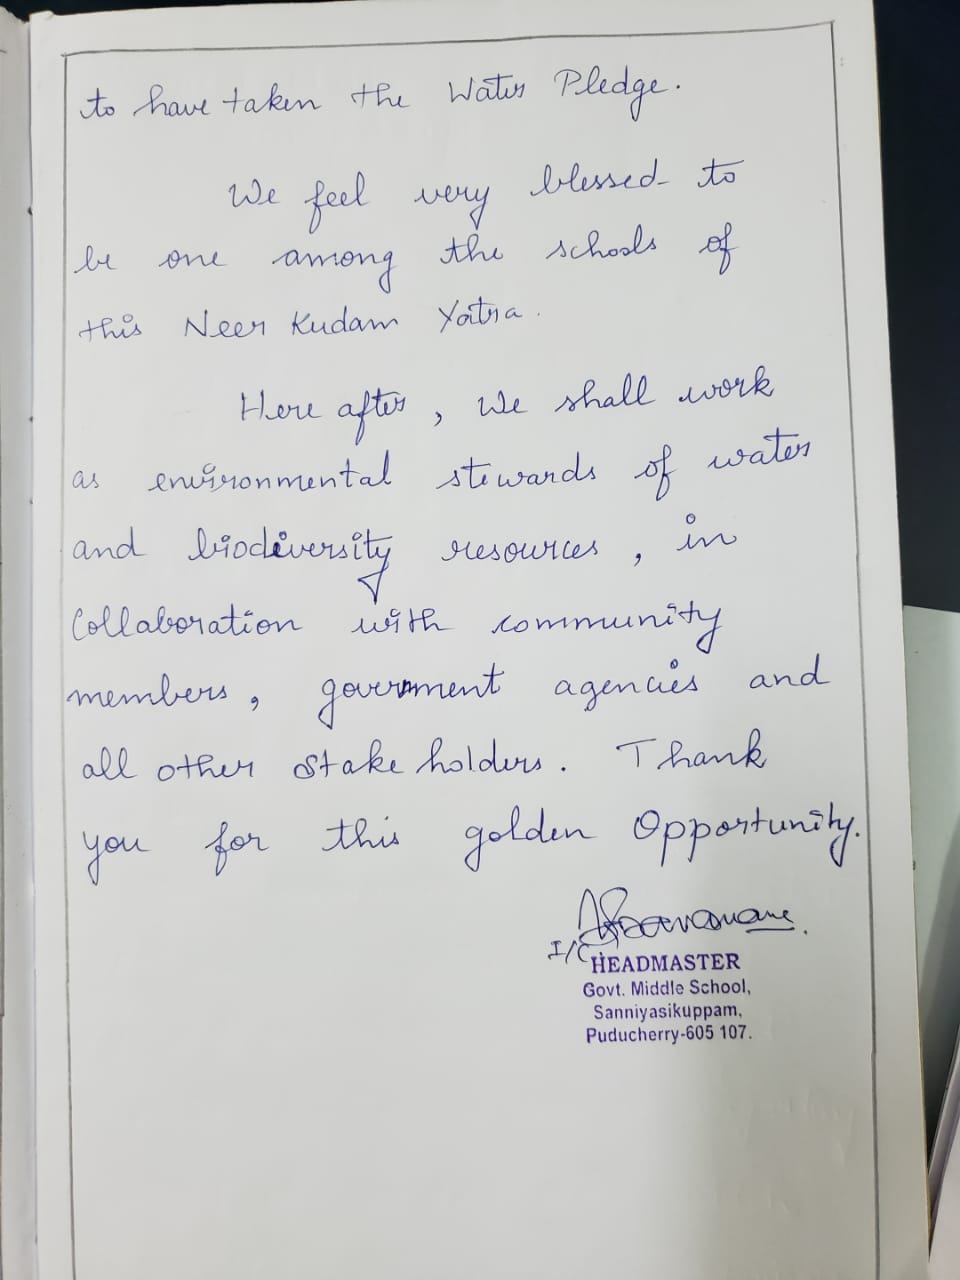 to have taken the Water Pledge.
We feel very blessed to
be one among the schools of
this Neer Kudam Yatra.
Here after, We shall work
as environmental stewards of water
and biodiversity resources, in
Collaboration with community
members, government agencies and
all other Stake holders. Thank
you for this golden Opportunity.
I/C
HEADMASTER
Govt. Middle School,
Sanniyasikuppam,
Puducherry-605 107.